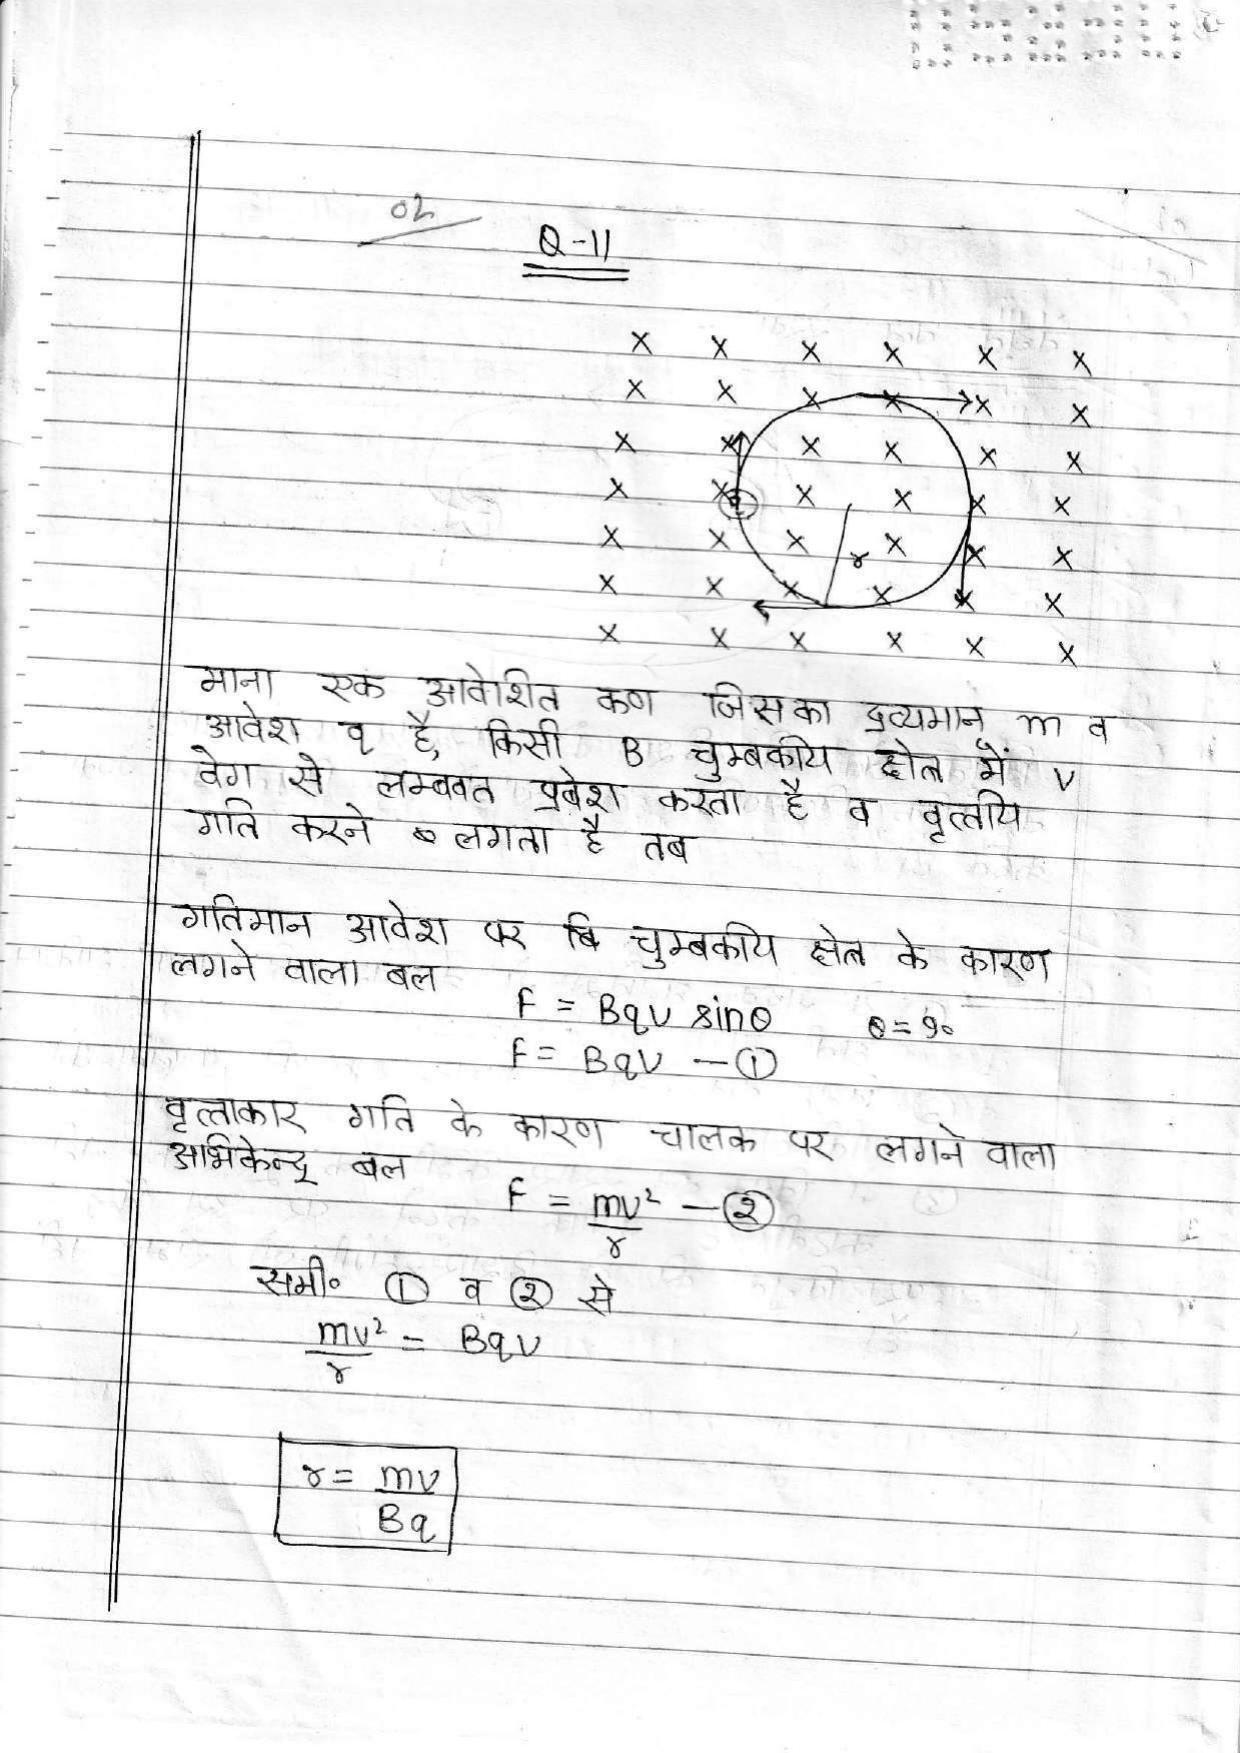 02
Q-11
x x x x x x
x x x x x x
x x x x x x
x x x x x x
x x x r x x x
x x x x x x
x x x x x x
माना एक आवेशित कण जिसका द्रव्यमान m व
आवेश q है, किसी B चुम्बकीय क्षेत्र में v
वेग से लम्बवत प्रवेश करता है व वृत्तीय
गति करने लगता है तब
गतिमान आवेश पर चुम्बकीय क्षेत्र के कारण
लगने वाला बल
F = Bqv sinθ θ = 90
F = Bqv — ①
वृत्ताकार गति के कारण चालक पर लगने वाला
अभिकेन्द्र बल
F = mv²/r — ②
समी० ① व ② से
mv²/r = Bqv
r = mv/Bq